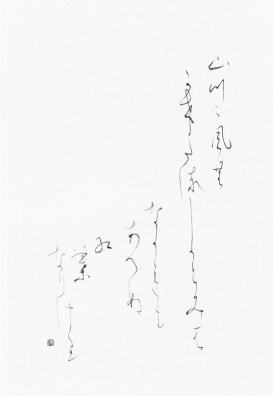 山川に風の
かけたるしからみは
なかれも
あへぬ
紅
葉
なりけり